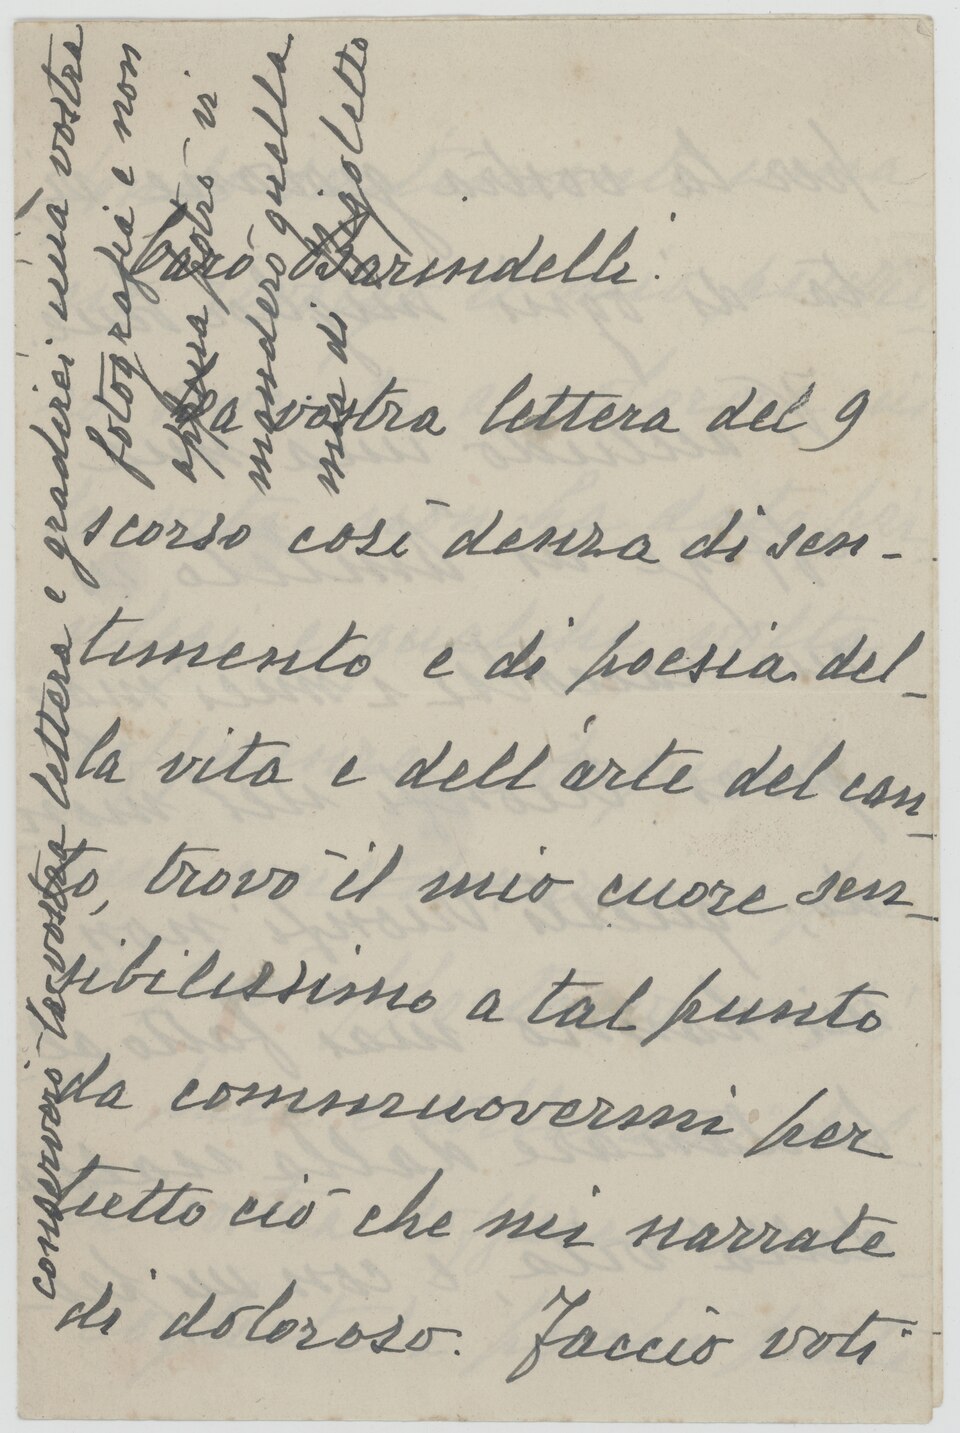 Caro Barindelli.
La vostra lettera del 9
scorso così denza di sen-
timento e di poesia del-
la vita e dell'arte del can-
to, trovo il mio cuore sen-
sibilissimo a tal punto
da commuovermi per
tutto ciò che mi narrate
di doloroso. Faccio voti
conserverò la vostra lettera e gradirei una vostra
fotografia e non
appena potrò vi
manderò quella
mia di Rigoletto